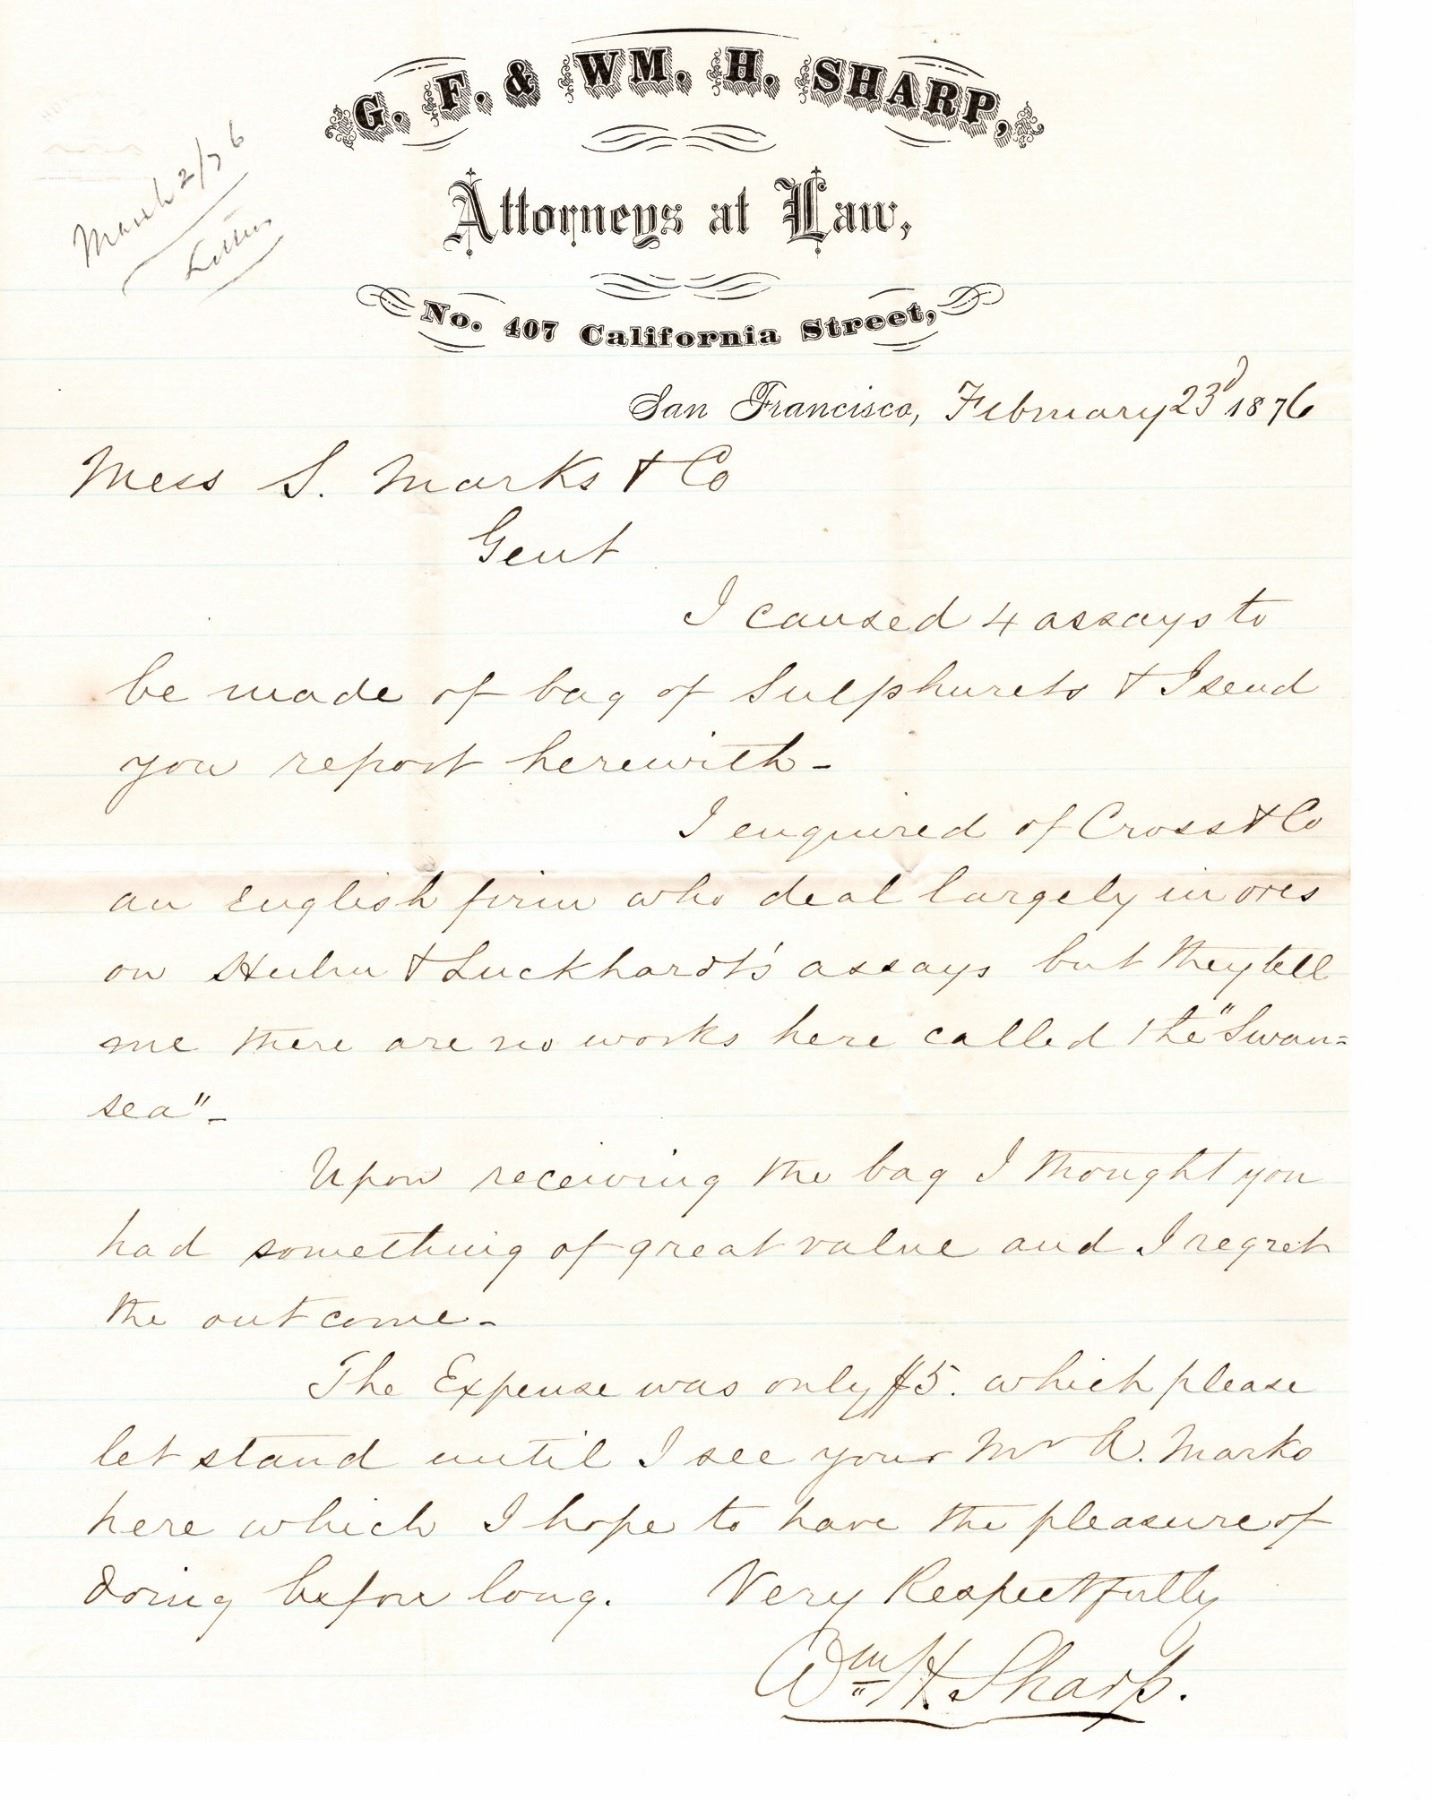 G. F. & WM. H. SHARP,
Attorneys at Law,
No. 407 California Street,
March 2/76
San Francisco, February 23d 1876
Mess S. Marks & Co
Gent
I caused 4 assays to
be made of bag of Sulphurets & I send
you report herewith-
I enquired of Cross & Co
an English firm who deal largely in ores
on Huhn & Luckhardt's assays but they tell
me there are no works here called the "Swan=
sea"-
Upon receiving the bag I thought you
had something of great value and I regret
the outcome-
The Expense was only $5. which please
let stand until I see your Mr A. Marks
here which I hope to have the pleasure of
doing before long. Very Respectfully
Wm H. Sharp.